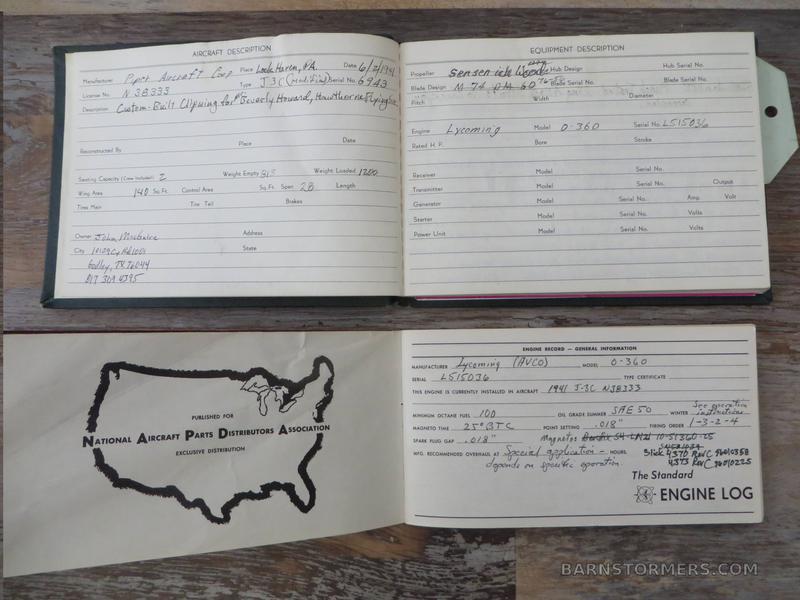 AIRCRAFT DESCRIPTION
Manufacturer Piper Aircraft Corp Place Lock Haven, PA. Date 6/7/1941
License No. N38333 Type J-3C (modified) Serial No. 6943
Description Custom-Built Clipwing for Beverly Howard, Hawthorne Flying
Reconstructed By Place Date
Seating Capacity (Crew Included) 2 Weight Empty Weight Loaded 1200
Wing Area 140 Sq. Ft. Control Area Sq. Ft. Span 28 Length
Tires Main Tire Tail Brakes
Owner John Address
City State
Godley, TX 76044
817 309 4395
EQUIPMENT DESCRIPTION
Propeller Sensenich Wood Hub Design Hub Serial No.
Blade Design Blade Serial No. Blade Serial No.
Pitch Width Diameter
Engine Lycoming Model O-360 Serial No. L515036
Rated H. P. Bore Stroke
Receiver Model Serial No.
Transmitter Model Serial No. Output
Generator Model Serial No. Amp. Volt
Starter Model Serial No. Volts
Power Unit Model Serial No. Volts
PUBLISHED FOR
NATIONAL AIRCRAFT PARTS DISTRIBUTORS ASSOCIATION
EXCLUSIVE DISTRIBUTION
ENGINE RECORD — GENERAL INFORMATION
MANUFACTURER Lycoming (AVCO) MODEL O-360
SERIAL L515036 TYPE CERTIFICATE
THIS ENGINE IS CURRENTLY INSTALLED IN AIRCRAFT 1941 J-3C N38333
See operation
MINIMUM OCTANE FUEL 100 OIL GRADE SUMMER SAE 50 WINTER instructions
MAGNETO TIME 25° BTC POINT SETTING .018" FIRING ORDER 1-3-2-4
SPARK PLUG GAP .018" Magnetos 10-51360-25
MFG. RECOMMENDED OVERHAUL AT Special application - HOURS. Slick 4370 Rev C
depends on specific operation. 4373 Rev C
The Standard
ENGINE LOG
BARNSTORMERS.COM